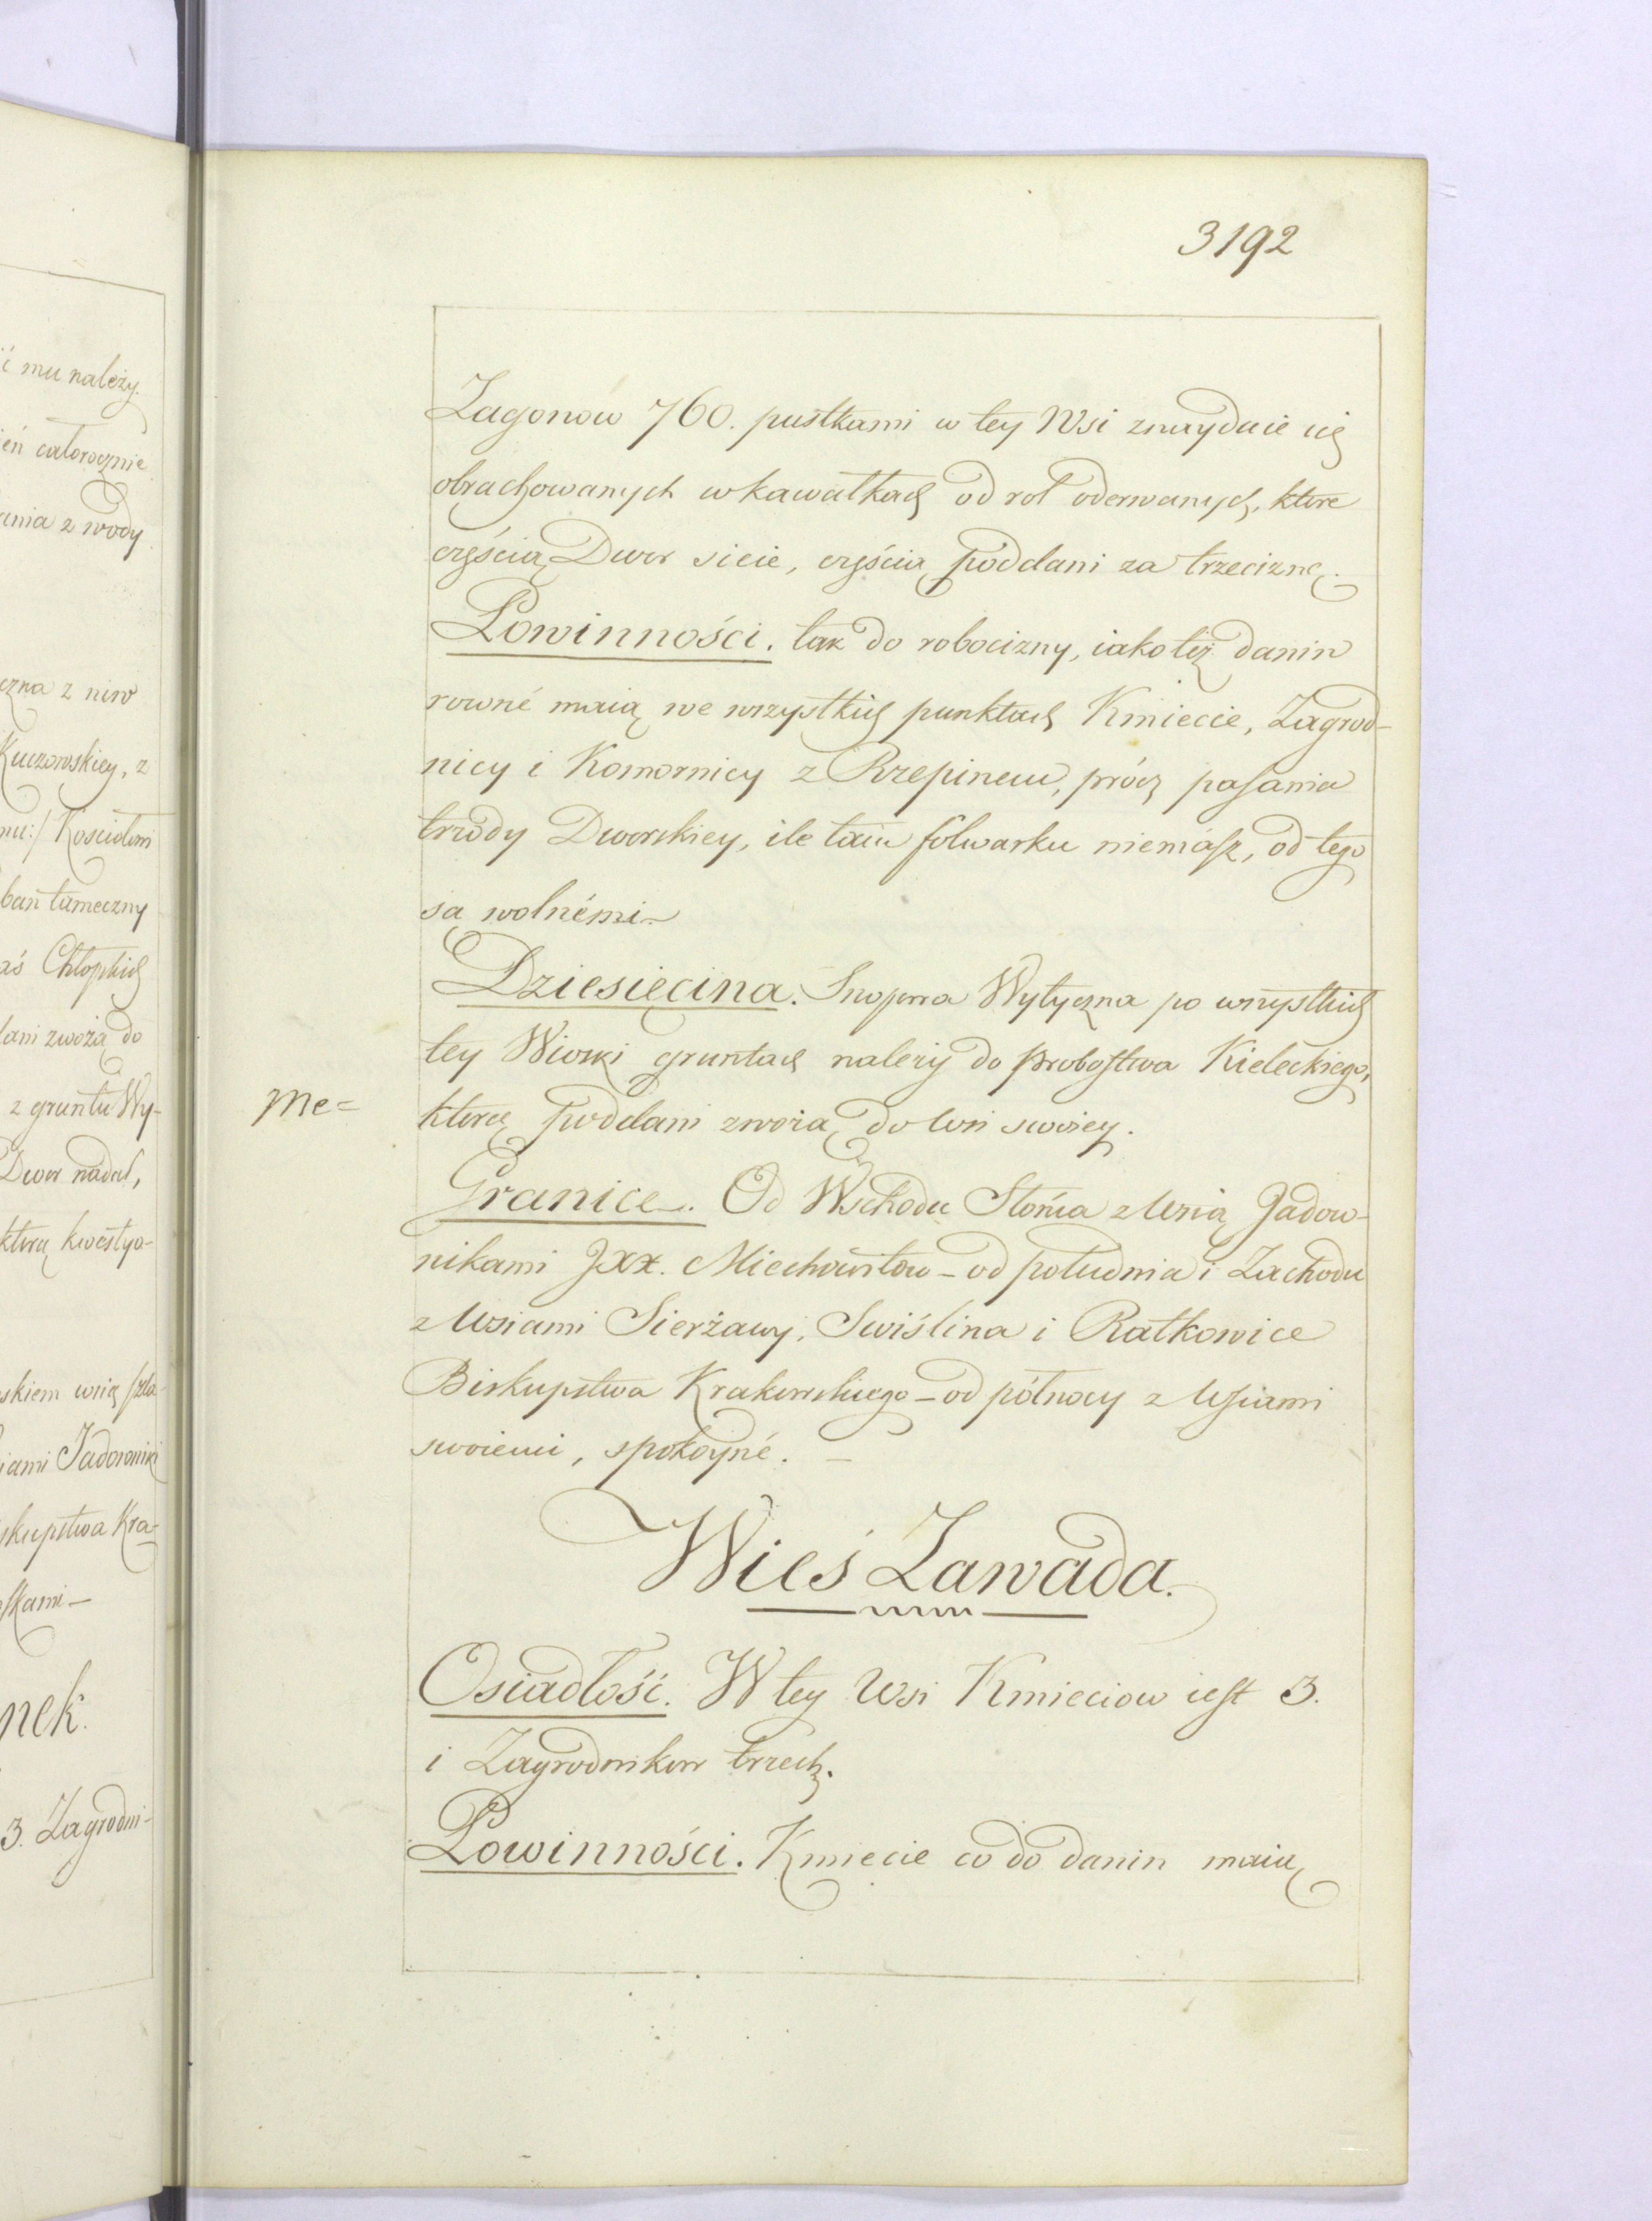 3192
Zagonow 760. pustkami w tey Wsi znayduie się
obrachowanych w kawałkach od rol oderwanych, ktore
częścią Dwor sieie, częścią poddani za trzeciznę.
Powinności. tak do robocizny, iako też danin
rowné maią we wszystkich punktach Kmiecie, Zagrod-
nicy i Komornicy z Rzepinem, prócz pasania
trzody Dworskiey, ile tam folwarku niemász, od tego
są wolnémi
Dziesięcina. Snopowa Wytyczna po wszystkich
tey Wioski gruntach należy do Probostwa Kieleckiego,
Me=
ktorą Poddani zwożą do Wsi swoiey.
Granice. Od Wschodu Słońca z Wsią Jadow-
nikami JXX. Miechowitow - od południa i Zachodu
z Wsiami Sierżawy, Swiślina i Ratkowice
Biskupstwa Krakowskiego - od północy z Wsiami
swoiemi, spokoyné. -
Wieś Zawada.
Osiadłość. W tey Wsi Kmieciow iest 3.
i Zagrodnikow trzech.
Powinności. Kmiecie co do danin maią
ć mu należy.
eń całorocznie
ania z wody
czna z niw
Kuczowskiey, z
mu:/ Kosciołowi
ban tameczny
aś Chłopskich
dani zwożą do
z gruntu Wy-
Dwor nadał,
ktorą kwestyo-
skiem wsią szla-
iami Jadowniki
skupstwa Kra-
skami -
nek.
3. Zagrodni-